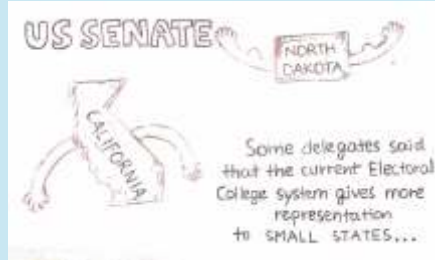 US SENATE
NORTH
DAKOTA
CALIFORNIA
Some delegates said
that the current Electoral
College system gives more
representation
to SMALL STATES...